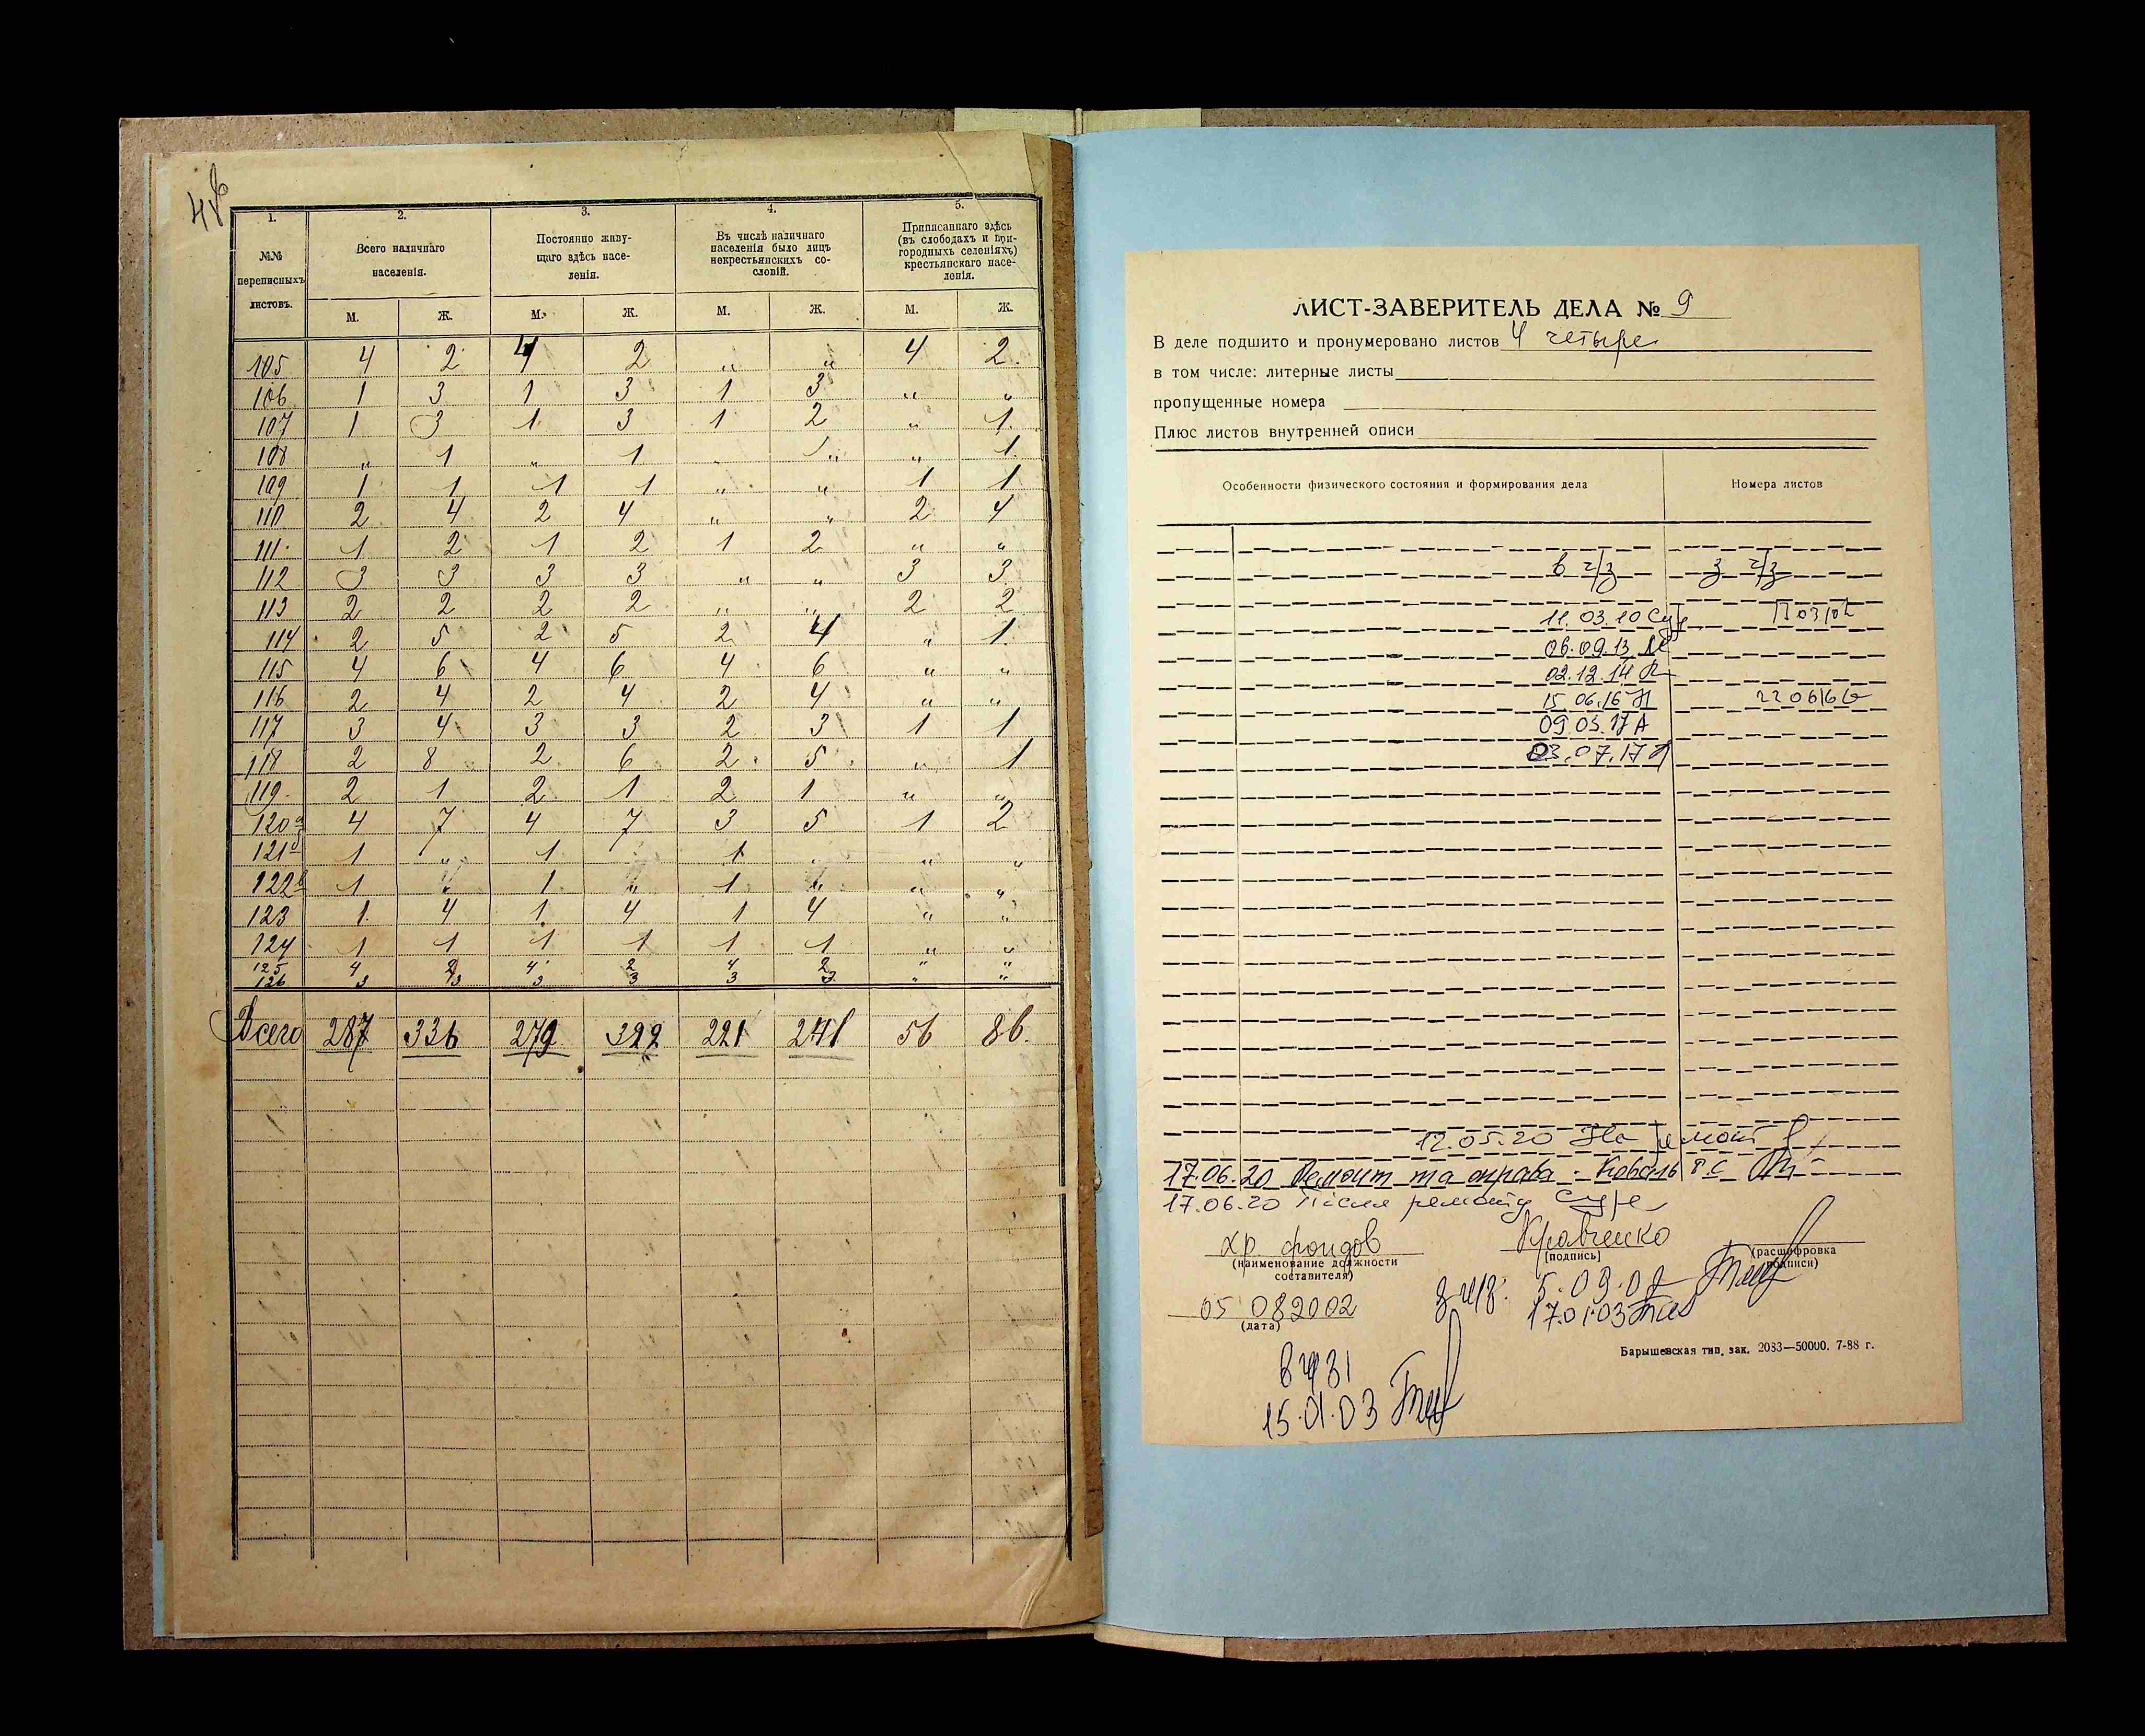 48
1. 2. 3. 4. 5.
№№ переписныхъ листовъ.
Всего наличнаго населенія.
Постоянно живущаго здѣсь населенія.
Въ числѣ наличнаго населенія было лицъ некрестьянскихъ сословій.
Приписаннаго здѣсь (въ слободахъ и пригородныхъ селеніяхъ) крестьянскаго населенія.
М. Ж. М. Ж. М. Ж. М. Ж.
105 4 2 4 2 „ „ 4 2
106 1 3 1 3 1 3 „ „
107 1 3 1 3 1 2 „ 1
108 „ 1 „ 1 „ „ „ 1
109 1 1 1 1 „ „ 1 1
110 2 4 2 4 „ „ 2 4
111 1 2 1 2 1 2 „ „
112 3 3 3 3 „ „ 3 3
113 2 2 2 2 „ „ 2 2
114 2 5 2 5 2 4 „ 1
115 4 6 4 6 4 6 „ „
116 2 4 2 4 2 4 „ „
117 3 4 3 3 2 3 1 1
118 2 8 2 6 2 5 „ 1
119 2 1 2 1 2 1 „ „
120 4 7 4 7 3 5 1 2
121 1 „ 1 „ 1 „ „ „
122 1 „ 1 „ 1 „ „ „
123 1 4 1 4 1 4 „ „
124 1 1 1 1 1 1 „ „
125 4 2 4 2 4 2 „ „
126 3 3 3 3 3 3 „ „
Всего 287 336 279 322 221 241 56 86.
ЛИСТ-ЗАВЕРИТЕЛЬ ДЕЛА № 9
В деле подшито и пронумеровано листов 4 четыре
в том числе: литерные листы
пропущенные номера
Плюс листов внутренней описи
Особенности физического состояния и формирования дела Номера листов
в ч/з з ч/з
11.03.10
06.09.13
02.12.14
15.06.16
09.03.17
03.07.17
12.05.20 На ремонт
17.06.20 Ремонт та оправа - Коваль Р.С.
17.06.20 Після ремонту
хр фондов Кравченко
(наименование должности составителя) (подпись) (расшифровка подписи)
05 08 2002
(дата)
17.01.03
15.01.03
Барышевская тип. зак. 2083—50000. 7-88 г.